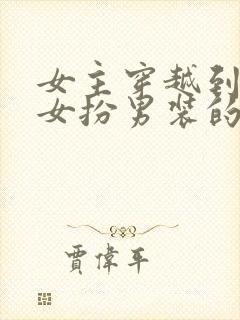 女主穿越到
女扮男装的
贾偉平